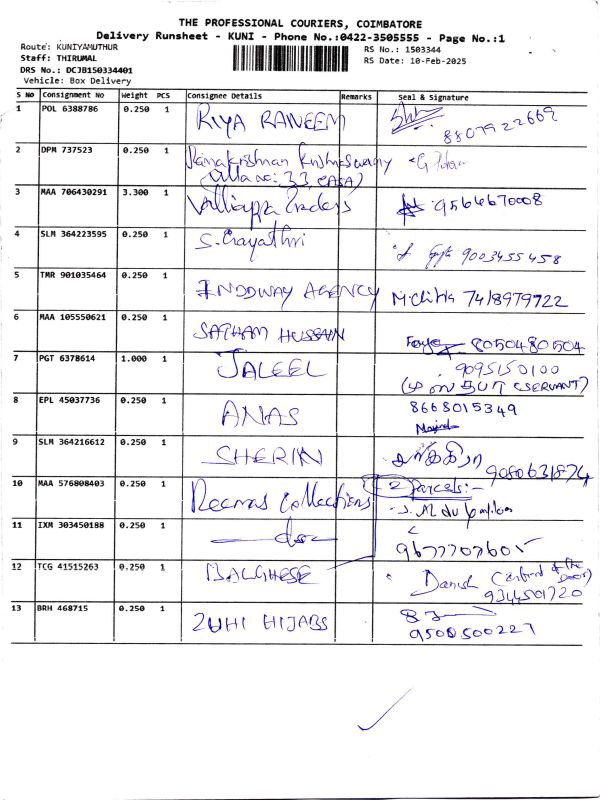 THE PROFESSIONAL COURIERS, COIMBATORE
Delivery Runsheet - KUNI - Phone No.:0422-3505555 - Page No.:1
Route: KUNIYAMUTHUR
RS No.: 1503344
Staff: THIRUMAL
RS Date: 10-Feb-2025
DRS No.: DCJB150334401
Vehicle: Box Delivery
S No Consignment No Weight PCS Consignee Details Remarks Seal & Signature
1 POL 6388786 0.250 1 RIYA RANEEM
8807922669
2 DPM 737523 0.250 1 Ramakrishnan
(Villa no: 33 CASA)
3 MAA 706430291 3.300 1 Valliappa Traders 9566670008
4 SLM 364223595 0.250 1 S. Gayathri 9003455458
5 TMR 901035464 0.250 1 INDDWAY AGENCY 7418979722
6 MAA 105550621 0.250 1 SATHAM HUSSAIN 8050480504
7 PGT 6378614 1.000 1 JALEEL 9095150100
(SERVANT)
8 EPL 45037736 0.250 1 ANAS 8668015349
9 SLM 364216612 0.250 1 SHERIN
9080631874
10 MAA 576808403 0.250 1 Reemas Collections 2 Parcels:-
11 IXM 303450188 0.250 1 —do—
9677707605
12 TCG 41515263 0.250 1 BALGHESE Danish (Infront of the Door)
9344501720
13 BRH 468715 0.250 1 ZUHI HIJABS
9500500227